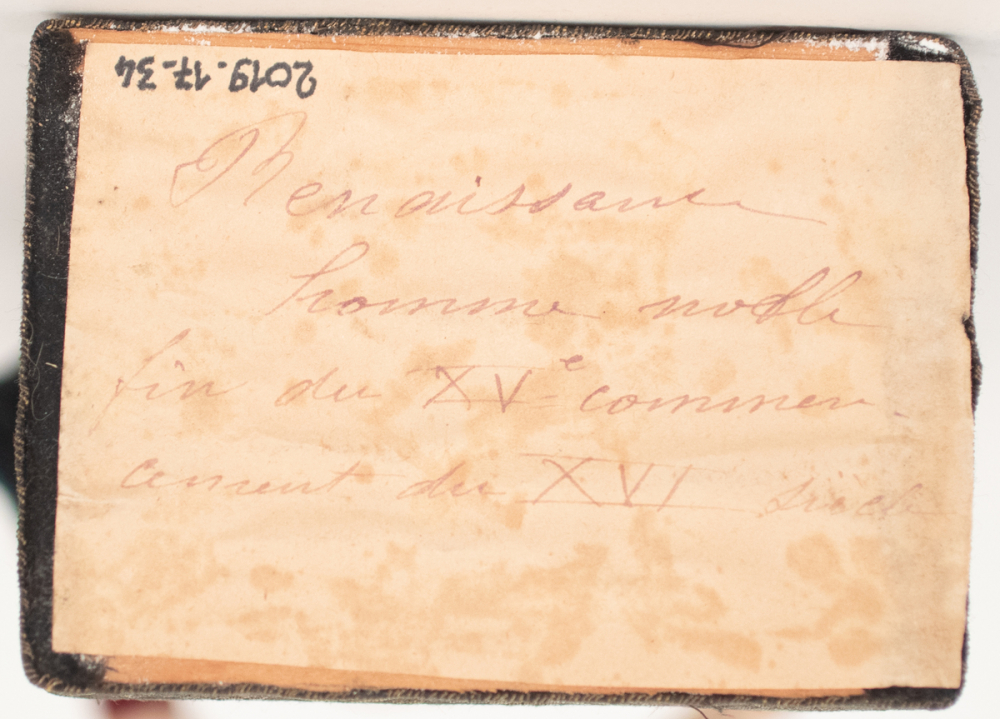 2019.17.34
Renaissance
homme noble
fin du XVe commen-
cement du XVI siècle